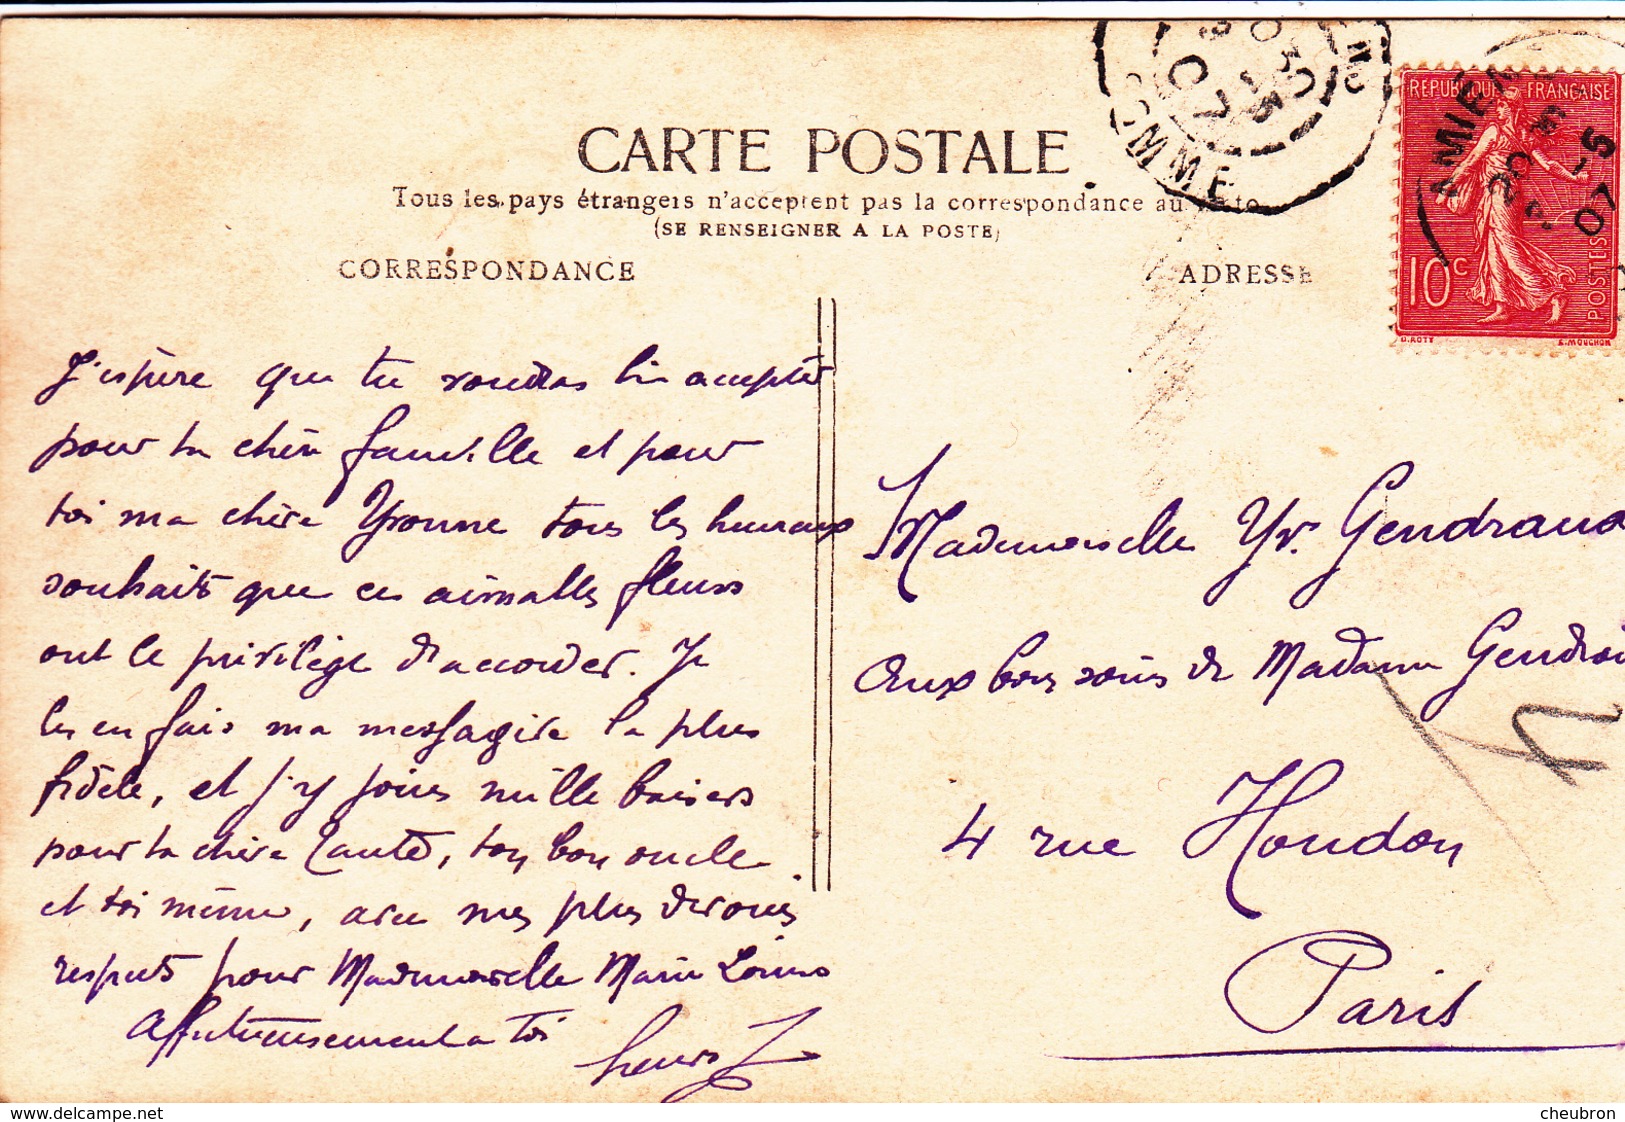 CARTE POSTALE
Tous les pays étrangers n'acceptent pas la correspondance au recto
(SE RENSEIGNER A LA POSTE)
CORRESPONDANCE
ADRESSE
SOMME
AMIENS
07
RÉPUBLIQUE FRANÇAISE
10c
POSTES
O. ROTY
E. MOUCHON
J'espère que tu voudras bien accepter
pour ta chère famille et pour
toi ma chère Yvonne tous les heureux
souhaits que ces aimables fleurs
ont le privilège d'accorder. Je
les en fais ma messagère la plus
fidèle, et j'y joins mille baisers
pour ta chère tante, ton bon oncle
et toi même, avec mes plus dévoués
respects pour Mademoiselle Marie Louise
affectueusement à toi
Henri
Mademoiselle Yv. Gendraud
aux bons soins de Madame
4 rue Houdon
Paris
www.delcampe.net
cheubron